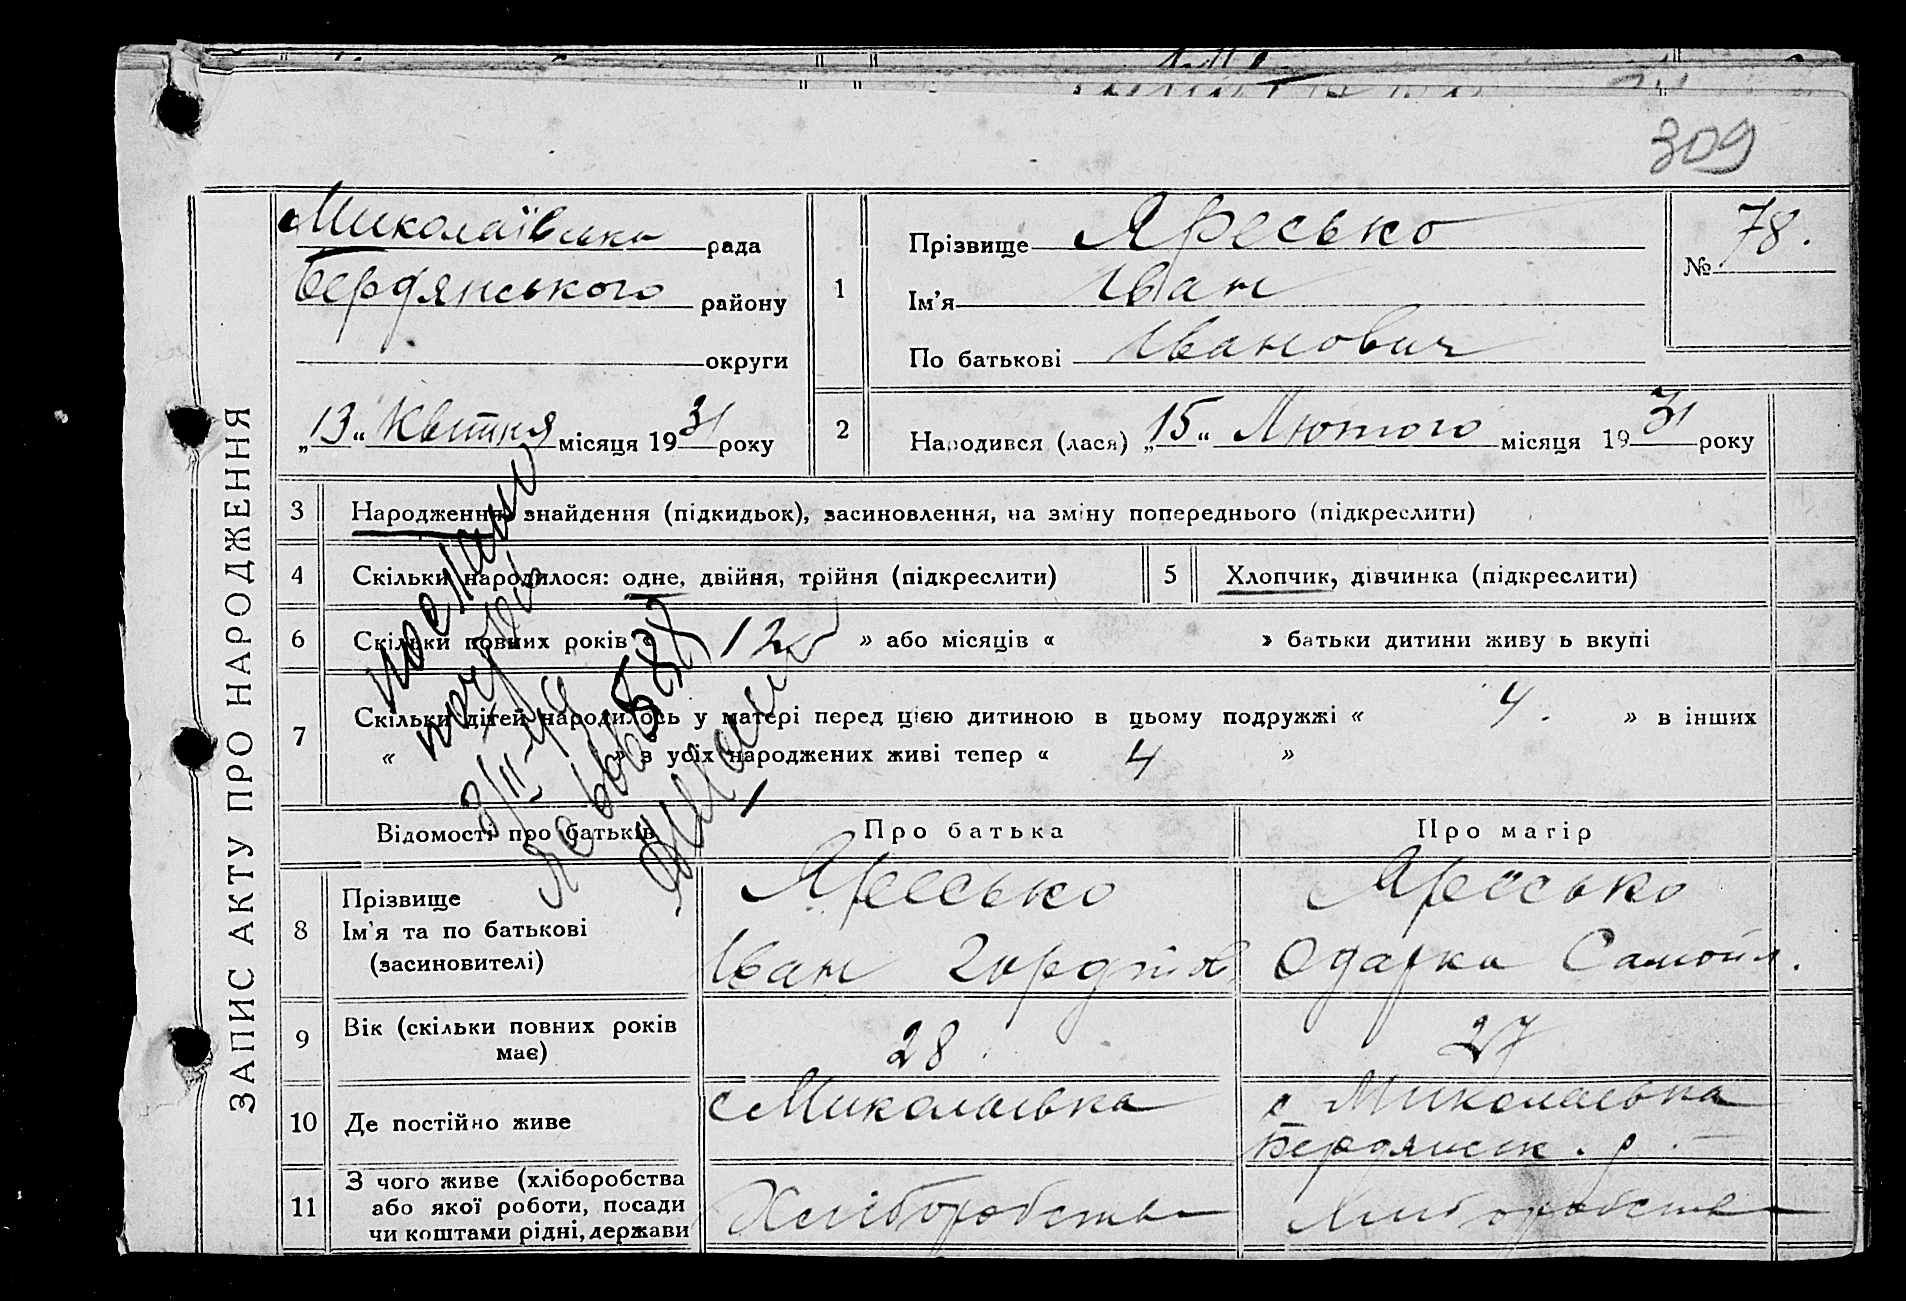 309
ЗАПИС АКТУ ПРО НАРОДЖЕННЯ
Миколаївська рада
Бердянського району
округи
„13“ Квітня місяця 1931 року
1
Прізвище Яресько
Ім'я Іван
По батькові Іванович
№ 78.
2
Народився (лася) „15“ Лютого місяця 1931 року
3 Народження, знайдення (підкидьок), засиновлення, на зміну попереднього (підкреслити)
4 Скільки народилося: одне, двійня, трійня (підкреслити)
5 Хлопчик, дівчинка (підкреслити)
6 Скільки повних років « 12 » або місяців « » батьки дитини живуть вкупі
7 Скільки дітей народилось у матері перед цією дитиною в цьому подружжі « 4. » в інших
« » з усіх народжених живі тепер « 4 »
Відомості про батьків Про батька Про матір
8 Прізвище
Ім'я та по батькові
(засиновителі)
Яресько
Іван
Яресько
Одарка Самойл.
9 Вік (скільки повних років
має)
28. 27
10 Де постійно живе
с Миколаївка
с Миколаївка
Бердянськ. р.
11 З чого живе (хліборобства
або якої роботи, посади
чи коштами рідні, держави
Хліборобства
Хліборобства